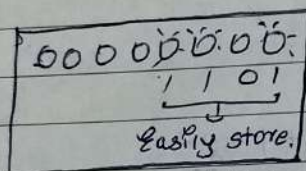 00000000
1101
Easily store.